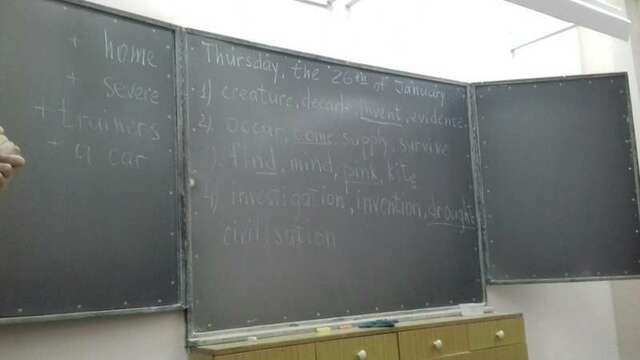 + home
+ severe
+ trainers
+ a car
Thursday, the 26th of January
1) creature, decade, invent, evidence
2) occur, come, supply, survive
3) find, mind, pink, kite
4) investigation, invention, drought,
civilisation